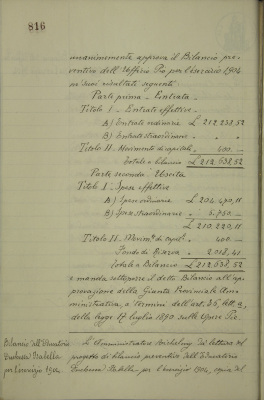 816
unanimemente approva il Bilancio pre-
ventivo dell'Ufficio Pio per l'esercizio 1904
nei suoi risultati seguenti:
Parte prima - Entrata
Titolo I - Entrate effettive -
A) Entrate ordinarie £ 212.238,52
B) Entrate straordinarie " "
Titolo II - Movimento di capitali " 400. —
Totale a bilancio £ 212.638,52
Parte seconda - Uscita
Titolo I - Spese effettive
A) Spese ordinarie £ 204.470,11
B) Spese straordinarie " 5.750. —
£ 210.220,11
Titolo II - Movim.to di capit.li " 400. —
Fondo di riserva " 2.018,41
Totale a Bilancio £ 212.638,52
e manda sottoporre il detto Bilancio all'ap-
provazione della Giunta Provinciale Am-
ministrativa, a termini dell'art. 35, lett. a,
della legge 17 luglio 1890 sulle Opere Pie.
Bilancio dell'Educatorio
Duchessa Isabella
per l'esercizio 1904
L'Amministratore dà lettura del
progetto di bilancio preventivo dell'Educatorio
Duchessa Isabella, per l'esercizio 1904,